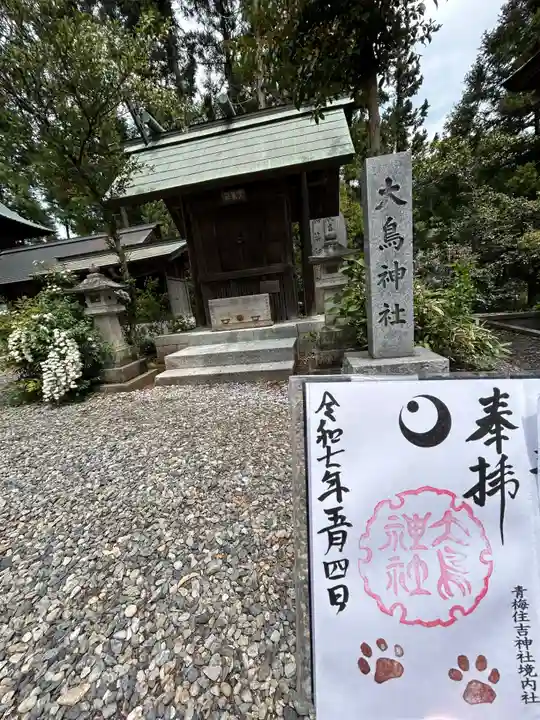 大鳥神社
奉拝
大鳥
神社
令和七年五月四日
青梅住吉神社境内社